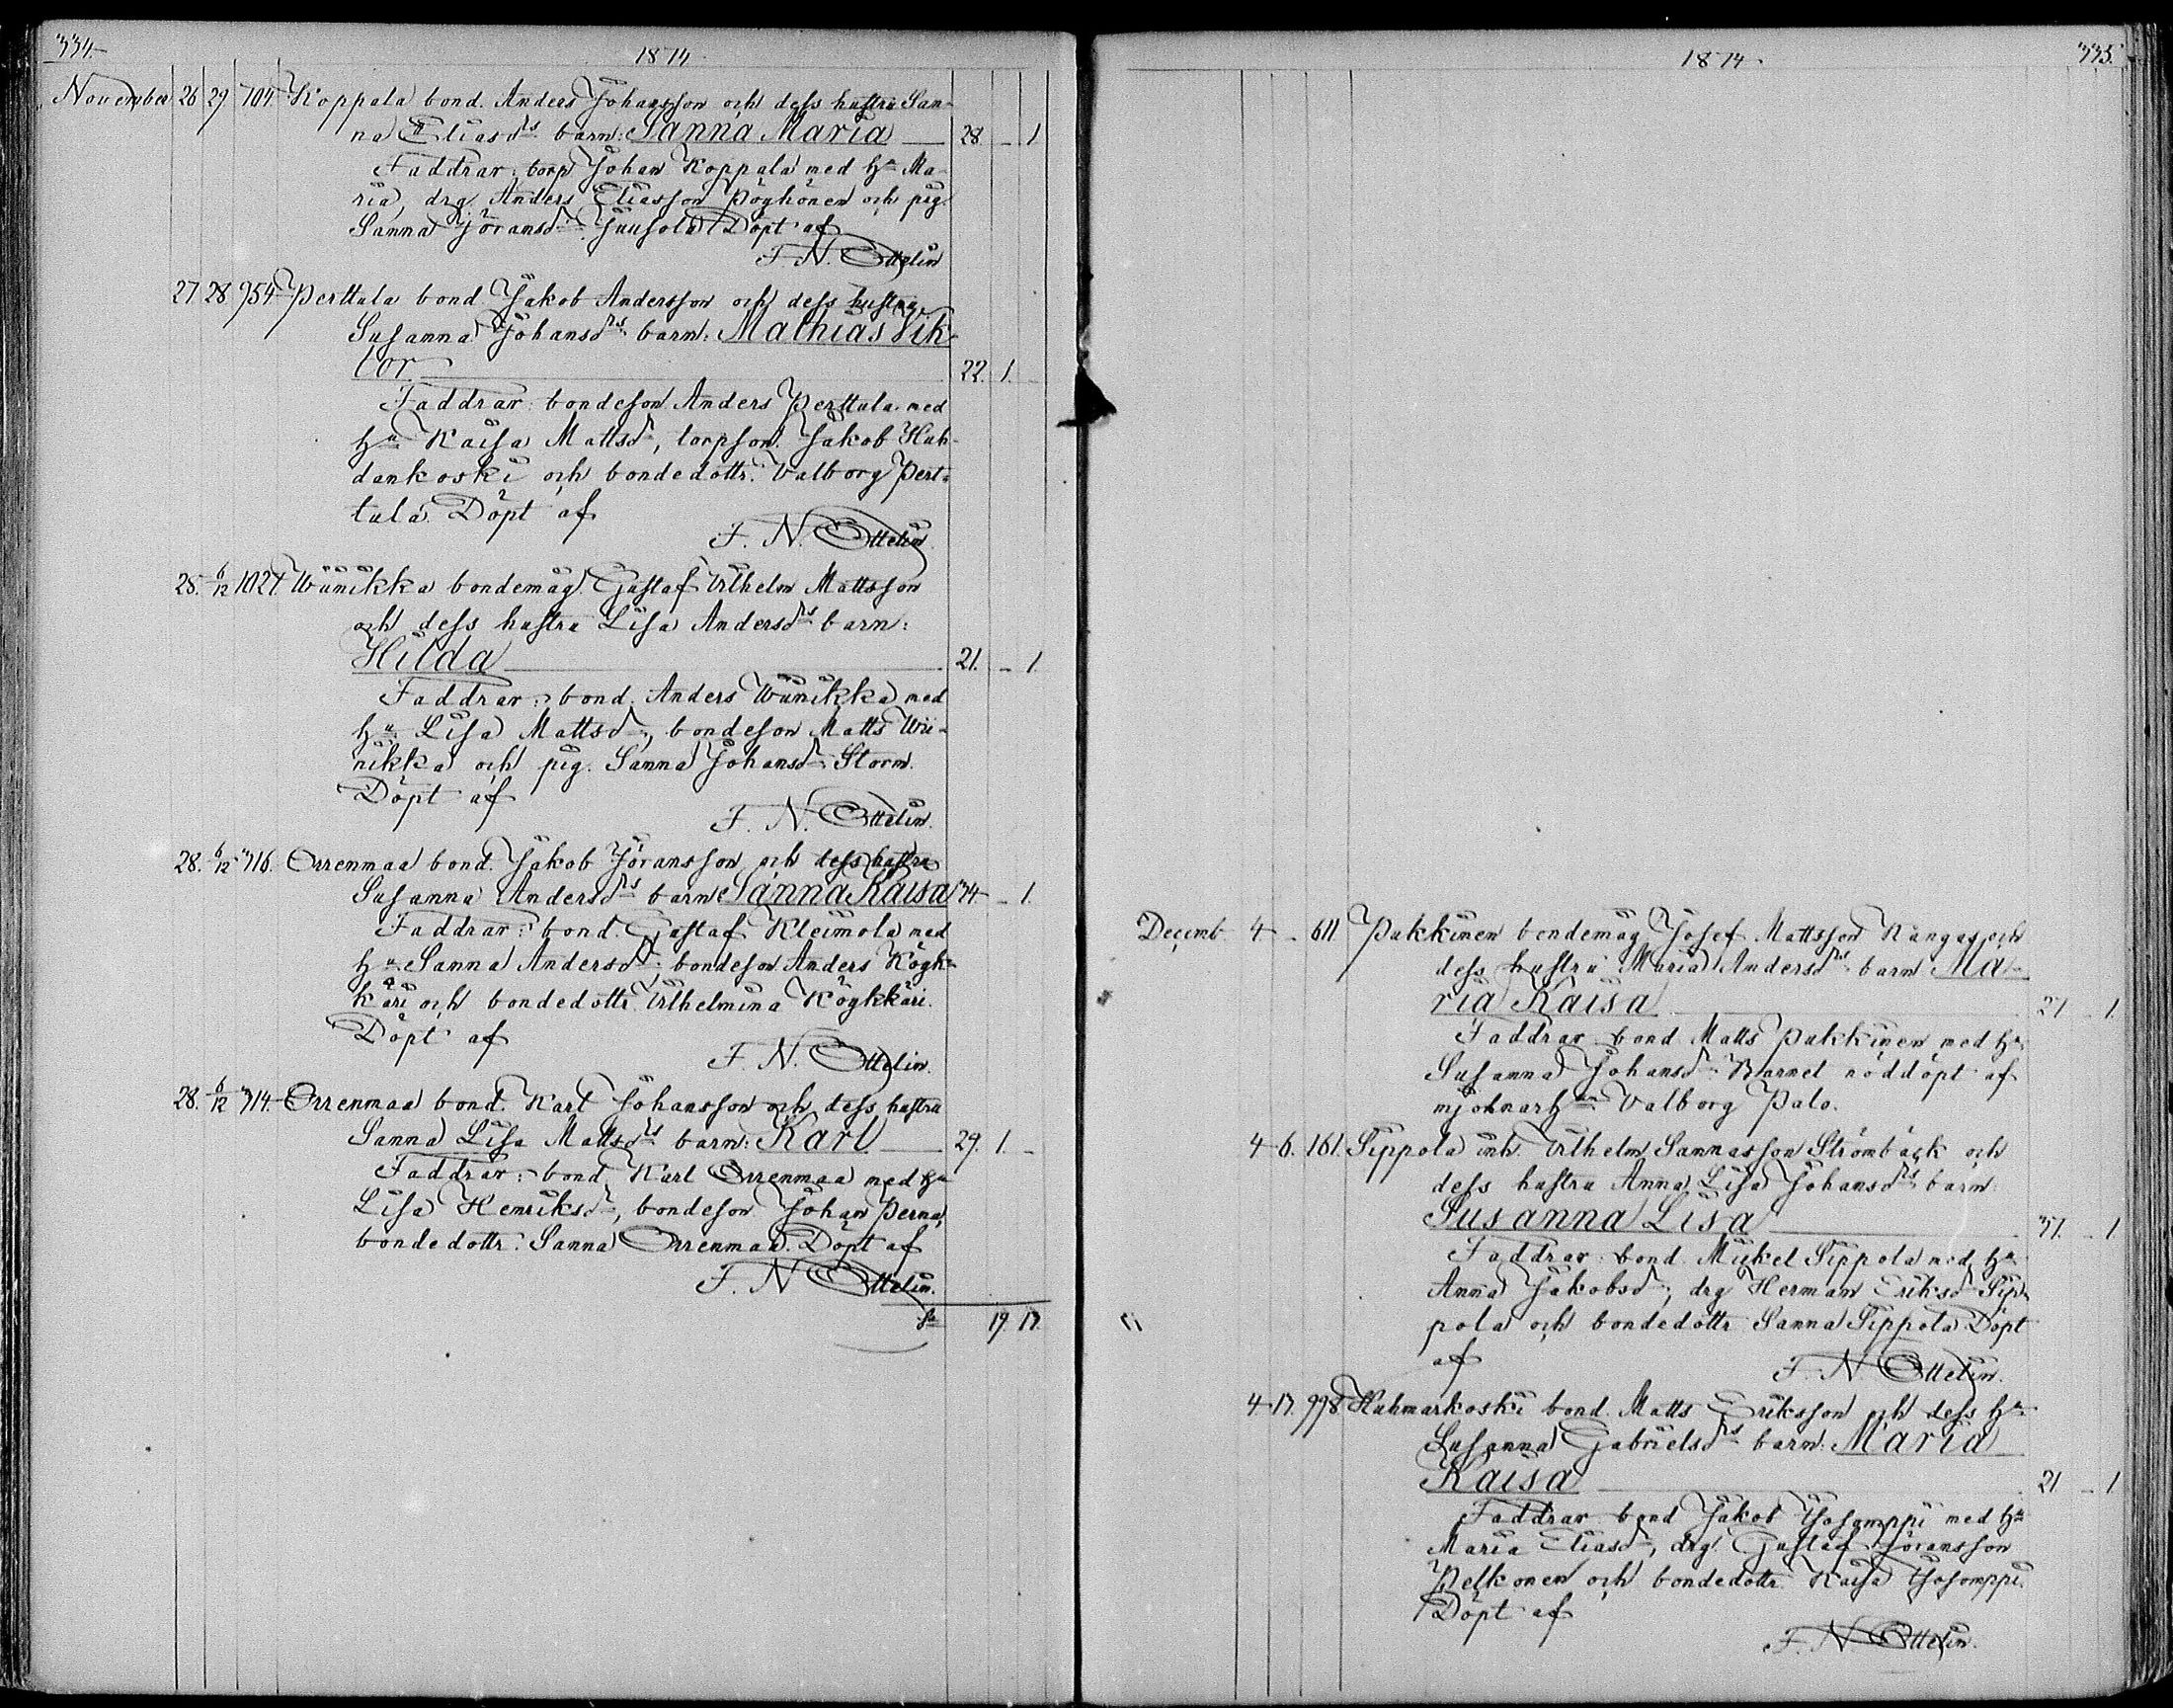 334.
1874.
November 26 29 704. Koppala bond. Anders Johansson och dess hustru San-
na Eliasdrs barn: Sanna Maria 28. – 1
Faddrar: torp Johan Koppala med hu Ma-
ria, drg. Anders Eliasson Pöyhönen och pig.
Sanna Jöransdr Juusola Döpt af
F. N. Ottelin
27 28 954 Perttula bond. Jakob Andersson och dess hustru
Susanna Johansdrs barn: Mathias Vik-
tor 22. 1. –
Faddrar: bondeson Anders Perttula med
hu Kaisa Mattsdr, torpson. Jakob Huh-
dankoski och bondedottr. Valborg Pert-
tula. Döpt af
F. N. Ottelin.
28. 6/12 1027 Wiinikka bondemåg. Gustaf Vilhelm Mattsson
och dess hustru Lisa Andersdrs barn:
Hilda 21. – 1.
Faddrar: bond. Anders Wiinikka med
hu Lisa Mattsdr, bondeson Matts Wii-
nikka och pig. Sanna Johansdr Storm.
Döpt af
F. N. Ottelin.
28. 6/12 716. Orrenmaa bond. Jakob Jöransson och dess hustru
Susanna Andersdrs barn Sanna Kaisa 34 – 1.
Faddrar: bond. Gustaf Kleimola med
hu Sanna Andersdr, bondeson Anders Köyk-
käri och bondedottr. Vilhelmina Köykkäri.
Döpt af
F. N. Ottelin.
28. 6/12 714. Orrenmaa bond. Karl Johansson och dess hustru
Sanna Lisa Mattsdrs barn: Karl 29. 1. –
Faddrar: bond. Karl Orrenmaa med hu
Lisa Henriksdr, bondeson Johan Perna,
bondedottr. Sanna Orrenmaa. Döpt af
F. N. Ottelin.
Sa 19. 17.
1874.
335.
Decemb. 4 – 611. Pukkinen bondemåg Josef Mattsson Kangas och
dess hustru Maria Andersdrs barn Ma-
ria Kaisa 27 – 1.
Faddrar bond Matts Pukkinen med hu
Susanna Johansdr Barnet nöddöpt af
mjölnarhun Valborg Palo.
4 6. 161. Sippola inh. Vilhelm Sannasson Strömbäck och
dess hustru Anna Lisa Johansdrs barn
Susanna Lisa 37. – 1.
Faddrar: bond. Mickel Sippola med hu
Anna Jakobsdr, drg Herman Eriksd Sip-
pola och bondedottr Sanna Sippola Döpt
af F. N. Ottelin.
4 17. 998 Huhmarkoski bond. Matts Eriksson och dess hu
Susanna Gabrielsdrs barn: Maria
Kaisa 21 – 1
Faddrar: bond Jakob med hu
Maria Eliasdr, drg. Gustaf Jöransson
Pelkonen och bondedottr. Kaisa
Döpt af
F. N. Ottelin.